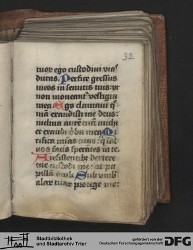 32
tuor ego custodiui vias
duras. Perfice gressus
meos in semitis tuis: ut
non moueantur vestigia
mea. Ego clamaui q
exaudisti me deus:
inclina aurem
et exaudi verba mea.
qui sal
uos facis sperantes in te.
A resistentibus dextere
tue custodi me ut pu
pillam oculi. Sub umbra
alarum tuarum protege me
Stadtbibliothek
und Stadtarchiv Trier
gefördert von der
Deutschen Forschungsgemeinschaft
DFG